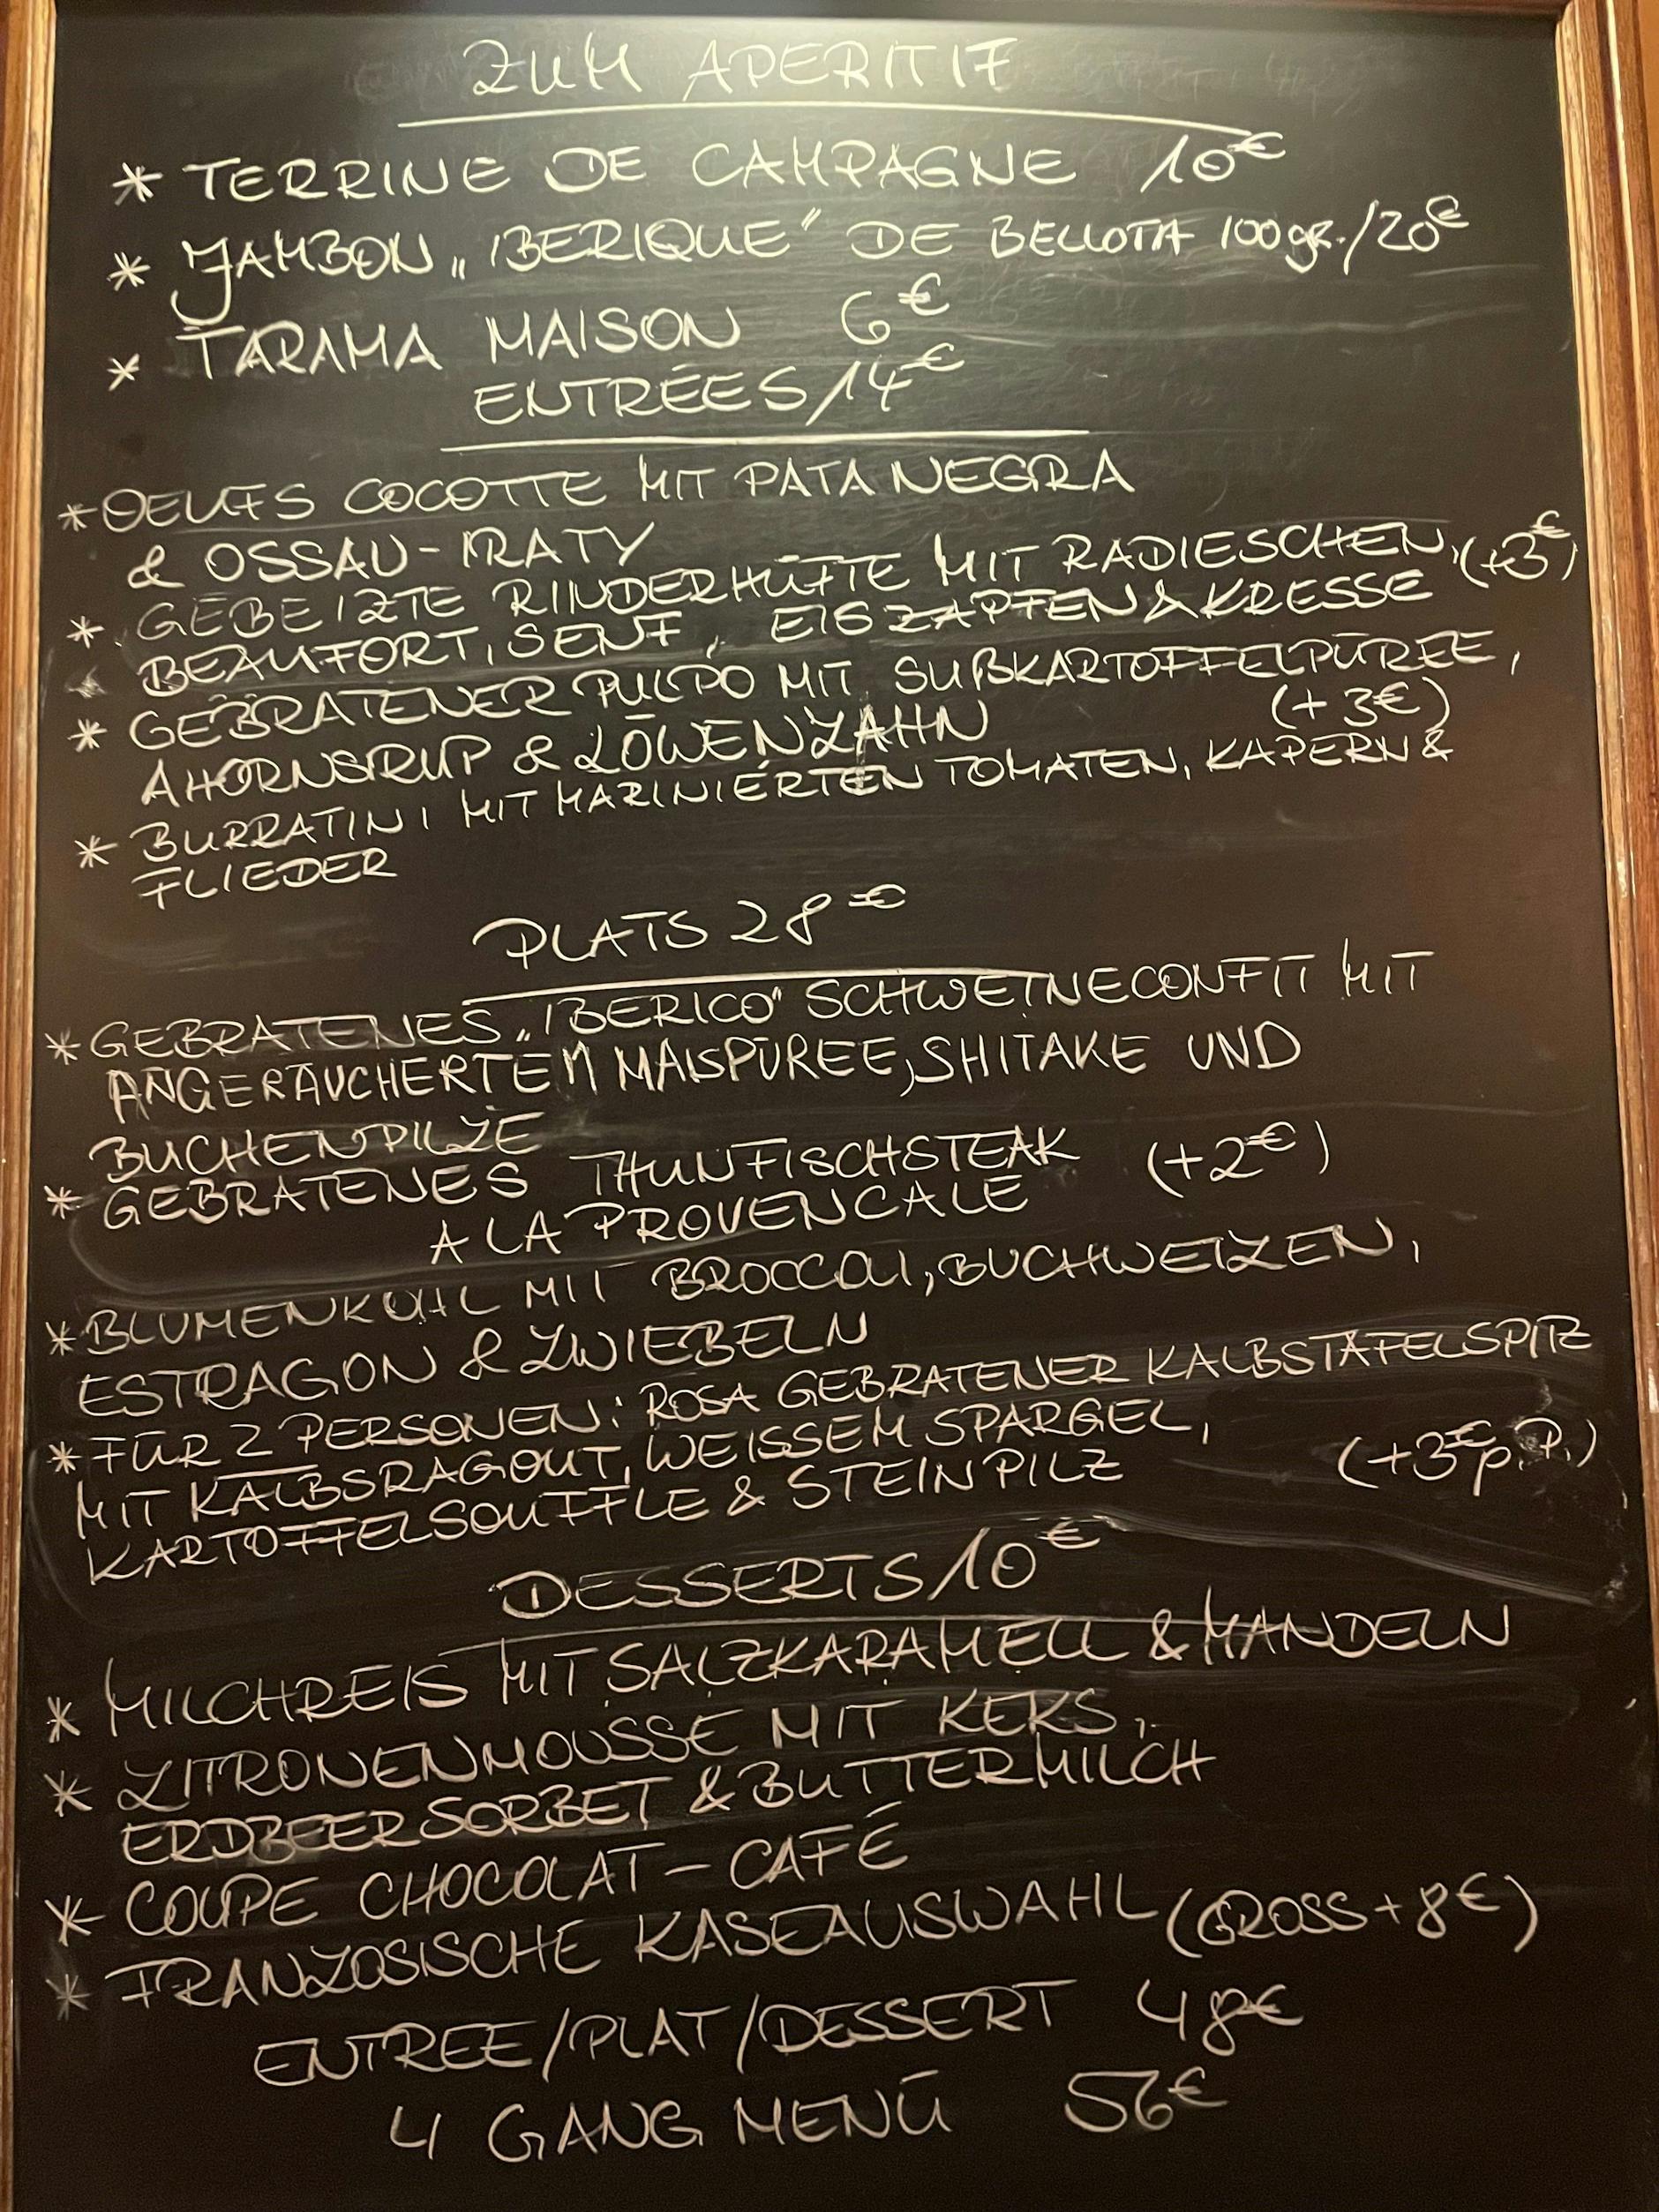 ZUM APERITIF
* TERRINE DE CAMPAGNE 10€
* JAMBON „IBERIQUE" DE BELLOTA 100gr./20€
* TARAMA MAISON 6€
ENTRÉES/14€
*OEUFS COCOTTE MIT PATA NEGRA
& OSSAU-IRATY
* GEBEIZTE RINDERHÜFTE MIT RADIESCHEN, (+3€)
BEAUFORT, SENF, EISZAPFEN & KRESSE
* GEBRATENER PULPO MIT SÜßKARTOFFELPÜREE,
AHORNSIRUP & LÖWENZAHN (+3€)
* BURRATINI MIT MARINIERTEN TOMATEN, KAPERN &
FLIEDER
PLATS 28€
*GEBRATENES „IBERICO" SCHWEINECONFIT MIT
ANGERÄUCHERTEM MAISPÜREE, SHITAKE UND
BUCHENPILZE
* GEBRATENES THUNFISCHSTEAK (+2€)
A LA PROVENCALE
*BLUMENKOHL MIT BROCCOLI, BUCHWEIZEN,
ESTRAGON & ZWIEBELN
*FÜR 2 PERSONEN: ROSA GEBRATENER KALBSTAFELSPITZ
MIT KALBSRAGOUT, WEISSEM SPARGEL,
KARTOFFELSOUFFLE & STEINPILZ (+3€ p.P.)
DESSERTS 10€
* MILCHREIS MIT SALZKARAMELL & MANDELN
* ZITRONENMOUSSE MIT KEKS,
ERDBEERSORBET & BUTTERMILCH
* COUPE CHOCOLAT-CAFÉ
* FRANZÖSISCHE KÄSEAUSWAHL (GROSS +8€)
ENTREE/PLAT/DESSERT 48€
4 GANG MENÜ 56€